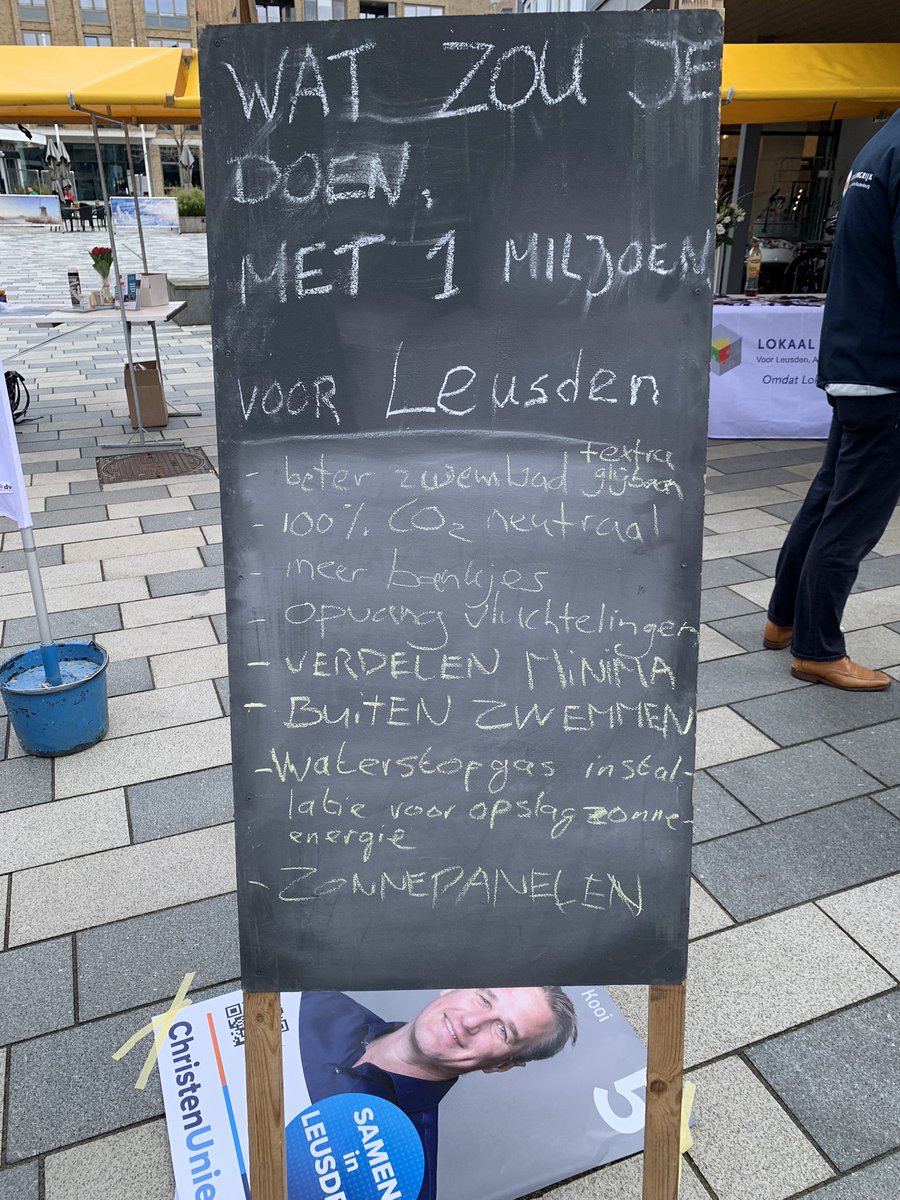 WAT ZOU JE
DOEN,
MET 1 MILJOEN
VOOR Leusden
- beter zwembad + extra
glijbaan
- 100% CO₂ neutraal
- meer bankjes
- opvang vluchtelingen
- VERDELEN MINIMA
- BUITEN ZWEMMEN
- Waterstofgas instal-
latie voor opslag zonne-
energie
- ZONNEPANELEN
LOKAAL
Voor Leusden, A
Omdat Lo
ChristenUnie
SAMEN
in
LEUSDE
Kooi
5